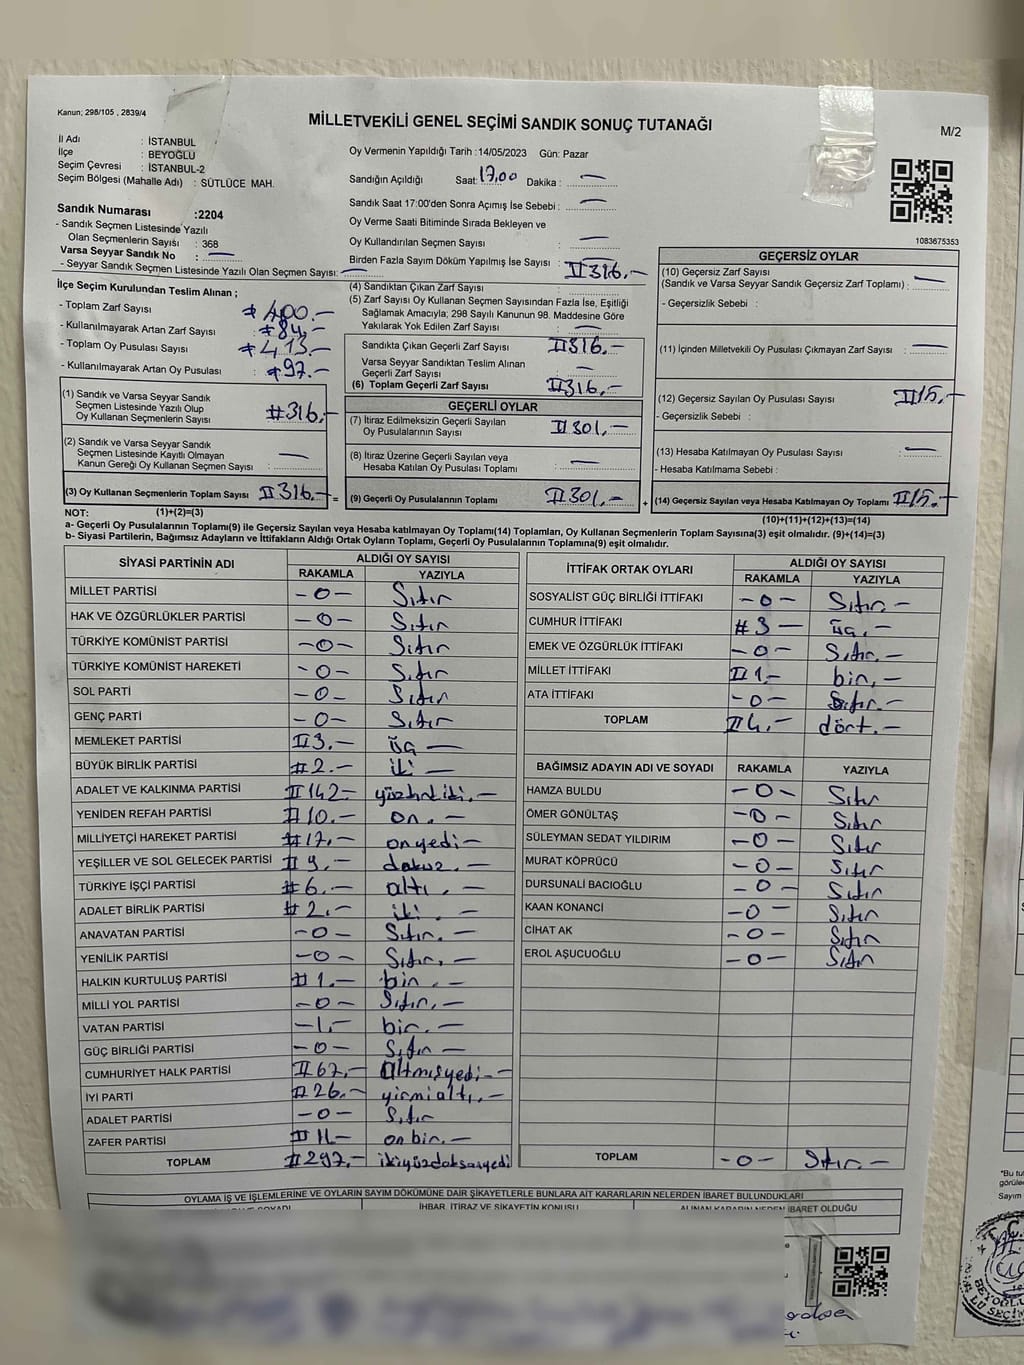 Kanun; 298/105 , 2839/4
MİLLETVEKİLİ GENEL SEÇİMİ SANDIK SONUÇ TUTANAĞI
M/2
İl Adı : İSTANBUL
İlçe : BEYOĞLU
Seçim Çevresi : İSTANBUL-2
Seçim Bölgesi (Mahalle Adı) : SÜTLÜCE MAH.
Oy Vermenin Yapıldığı Tarih :14/05/2023 Gün: Pazar
Sandığın Açıldığı Saat: 17,00 Dakika : —
Sandık Saat 17:00'den Sonra Açımış İse Sebebi : —
Oy Verme Saati Bitiminde Sırada Bekleyen ve
Oy Kullandırılan Seçmen Sayısı —
Birden Fazla Sayım Döküm Yapılmış İse Sayısı #316.-
Sandık Numarası :2204
- Sandık Seçmen Listesinde Yazılı
Olan Seçmenlerin Sayısı : 368
Varsa Seyyar Sandık No : —
- Seyyar Sandık Seçmen Listesinde Yazılı Olan Seçmen Sayısı: —
1083675353
İlçe Seçim Kurulundan Teslim Alınan ;
- Toplam Zarf Sayısı #400.-
- Kullanılmayarak Artan Zarf Sayısı : #84.-
- Toplam Oy Pusulası Sayısı #413.-
- Kullanılmayarak Artan Oy Pusulası : #97.-
(1) Sandık ve Varsa Seyyar Sandık
Seçmen Listesinde Yazılı Olup
Oy Kullanan Seçmenlerin Sayısı #316.-
(2) Sandık ve Varsa Seyyar Sandık
Seçmen Listesinde Kayıtlı Olmayan
Kanun Gereği Oy Kullanan Seçmen Sayısı : —
(3) Oy Kullanan Seçmenlerin Toplam Sayısı #316.- =
(4) Sandıktan Çıkan Zarf Sayısı :
(5) Zarf Sayısı Oy Kullanan Seçmen Sayısından Fazla İse, Eşitliği
Sağlamak Amacıyla; 298 Sayılı Kanunun 98. Maddesine Göre
Yakılarak Yok Edilen Zarf Sayısı : —
Sandıkta Çıkan Geçerli Zarf Sayısı #316.-
Varsa Seyyar Sandıktan Teslim Alınan
Geçerli Zarf Sayısı : —
(6) Toplam Geçerli Zarf Sayısı #316.-
GEÇERLİ OYLAR
(7) İtiraz Edilmeksizin Geçerli Sayılan
Oy Pusulalarının Sayısı #301.-
(8) İtiraz Üzerine Geçerli Sayılan veya
Hesaba Katılan Oy Pusulası Toplamı : —
(9) Geçerli Oy Pusulalarının Toplamı #301.- +
GEÇERSİZ OYLAR
(10) Geçersiz Zarf Sayısı
(Sandık ve Varsa Seyyar Sandık Geçersiz Zarf Toplamı) : —
- Geçersizlik Sebebi :
(11) İçinden Milletvekili Oy Pusulası Çıkmayan Zarf Sayısı : —
(12) Geçersiz Sayılan Oy Pusulası Sayısı #15.-
- Geçersizlik Sebebi :
(13) Hesaba Katılmayan Oy Pusulası Sayısı : —
- Hesaba Katılmama Sebebi :
(14) Geçersiz Sayılan veya Hesaba Katılmayan Oy Toplamı #15.-
NOT: (1)+(2)=(3) (10)+(11)+(12)+(13)=(14)
a- Geçerli Oy Pusulalarının Toplamı(9) ile Geçersiz Sayılan veya Hesaba katılmayan Oy Toplamı(14) Toplamları, Oy Kullanan Seçmenlerin Toplam Sayısına(3) eşit olmalıdır. (9)+(14)=(3)
b- Siyasi Partilerin, Bağımsız Adayların ve İttifakların Aldığı Ortak Oyların Toplamı, Geçerli Oy Pusulalarının Toplamına(9) eşit olmalıdır.
SİYASİ PARTİNİN ADI ALDIĞI OY SAYISI
RAKAMLA YAZIYLA
MİLLET PARTİSİ -0- Sıfır
HAK VE ÖZGÜRLÜKLER PARTİSİ -0- Sıfır
TÜRKİYE KOMÜNİST PARTİSİ -0- Sıfır
TÜRKİYE KOMÜNİST HAREKETİ -0- Sıfır
SOL PARTİ -0- Sıfır
GENÇ PARTİ -0- Sıfır
MEMLEKET PARTİSİ #3.- üç —
BÜYÜK BİRLİK PARTİSİ #2.- iki —
ADALET VE KALKINMA PARTİSİ #142- yüzkırkiki.-
YENİDEN REFAH PARTİSİ #10.- on.-
MİLLİYETÇİ HAREKET PARTİSİ #17.- onyedi-
YEŞİLLER VE SOL GELECEK PARTİSİ #9.- dokuz.-
TÜRKİYE İŞÇİ PARTİSİ #6.- altı.-
ADALET BİRLİK PARTİSİ #2.- iki.-
ANAVATAN PARTİSİ -0- Sıfır.-
YENİLİK PARTİSİ -0- Sıfır.-
HALKIN KURTULUŞ PARTİSİ #1.- bir.-
MİLLİ YOL PARTİSİ -0- Sıfır.-
VATAN PARTİSİ -1.- bir.-
GÜÇ BİRLİĞİ PARTİSİ -0- Sıfır-
CUMHURİYET HALK PARTİSİ #67.- altmışyedi.-
İYİ PARTİ #26.- yirmialtı.-
ADALET PARTİSİ -0- Sıfır
ZAFER PARTİSİ #11- onbir.-
TOPLAM #297.- ikiyüzdoksanyedi
İTTİFAK ORTAK OYLARI ALDIĞI OY SAYISI
RAKAMLA YAZIYLA
SOSYALİST GÜÇ BİRLİĞİ İTTİFAKI -0- Sıfır.-
CUMHUR İTTİFAKI #3- üç.-
EMEK VE ÖZGÜRLÜK İTTİFAKI -0- Sıfır.-
MİLLET İTTİFAKI #1.- bir.-
ATA İTTİFAKI -0- Sıfır.-
TOPLAM #4.- dört.-
BAĞIMSIZ ADAYIN ADI VE SOYADI RAKAMLA YAZIYLA
HAMZA BULDU -0- Sıfır
ÖMER GÖNÜLTAŞ -0- Sıfır
SÜLEYMAN SEDAT YILDIRIM -0- Sıfır
MURAT KÖPRÜCÜ -0- Sıfır
DURSUNALİ BACIOĞLU -0- Sıfır
KAAN KONANCİ -0- Sıfır
CİHAT AK -0- Sıfır
EROL AŞUCUOĞLU -0- Sıfır
TOPLAM -0- Sıfır.-
OYLAMA İŞ VE İŞLEMLERİNE VE OYLARIN SAYIM DÖKÜMÜNE DAİR ŞİKAYETLERLE BUNLARA AİT KARARLARIN NELERDEN İBARET BULUNDUKLARI
İHBAR, İTİRAZ VE ŞİKAYETİN KONUSU ALINAN KARARIN NEDEN İBARET OLDUĞU